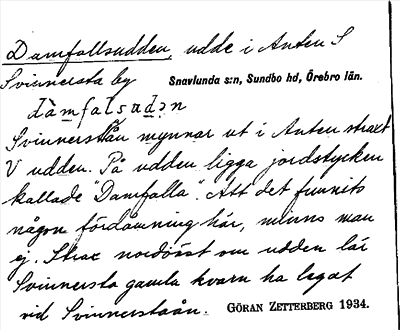 Damfallsudden, udde i Anten S
Svinnersta by Snavlunda s:n, Sundbo hd, Örebro län.
dàmfalsɯdən
Svinnerstån mynnar ut i Anten straxt
V udden. På udden ligga jordstycken
kallade "Damfalla". Att det funnits
någon fördämning här, minns man
ej. Strax nordöst om udden lär
Svinnersta gamla kvarn ha legat
vid Svinnerstaån. GÖRAN ZETTERBERG 1934.